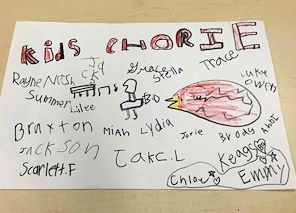 KiDS CHORIE
Jack
Grace
Trace
Rayne
Stella
Luke
Owen
Summer
Lilee
Bo
Braxton
Miah
Lydia
Josie
Brody
Abbi
JACKSON
Jake.L
Keagan
Scarlett.F
Chloe
Emmy